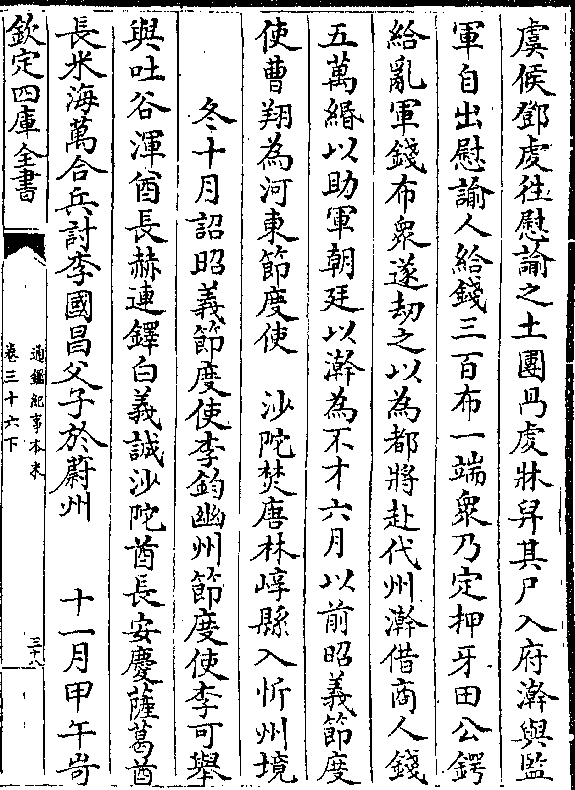 虞候鄧虔往慰諭之土團冎虔牀舁其尸入府瀚與監
軍自出慰諭人給錢三百布一端衆乃定押牙田公鍔
給亂軍錢布衆遂劫之以為都將赴代州瀚借商人錢
五萬緡以助軍朝廷以瀚為不才六月以前昭義節度
使曹翔為河東節度使　沙陀焚唐林崞縣入忻州境
冬十月詔昭義節度使李鈞幽州節度使李可舉
與吐谷渾酋長赫連鐸白義誠沙陀酋長安慶薩葛酋
長米海萬合兵討李國昌父子於蔚州　十一月甲午岢
欽定四庫全書
通鑑紀事本末
卷三十六下
三十八